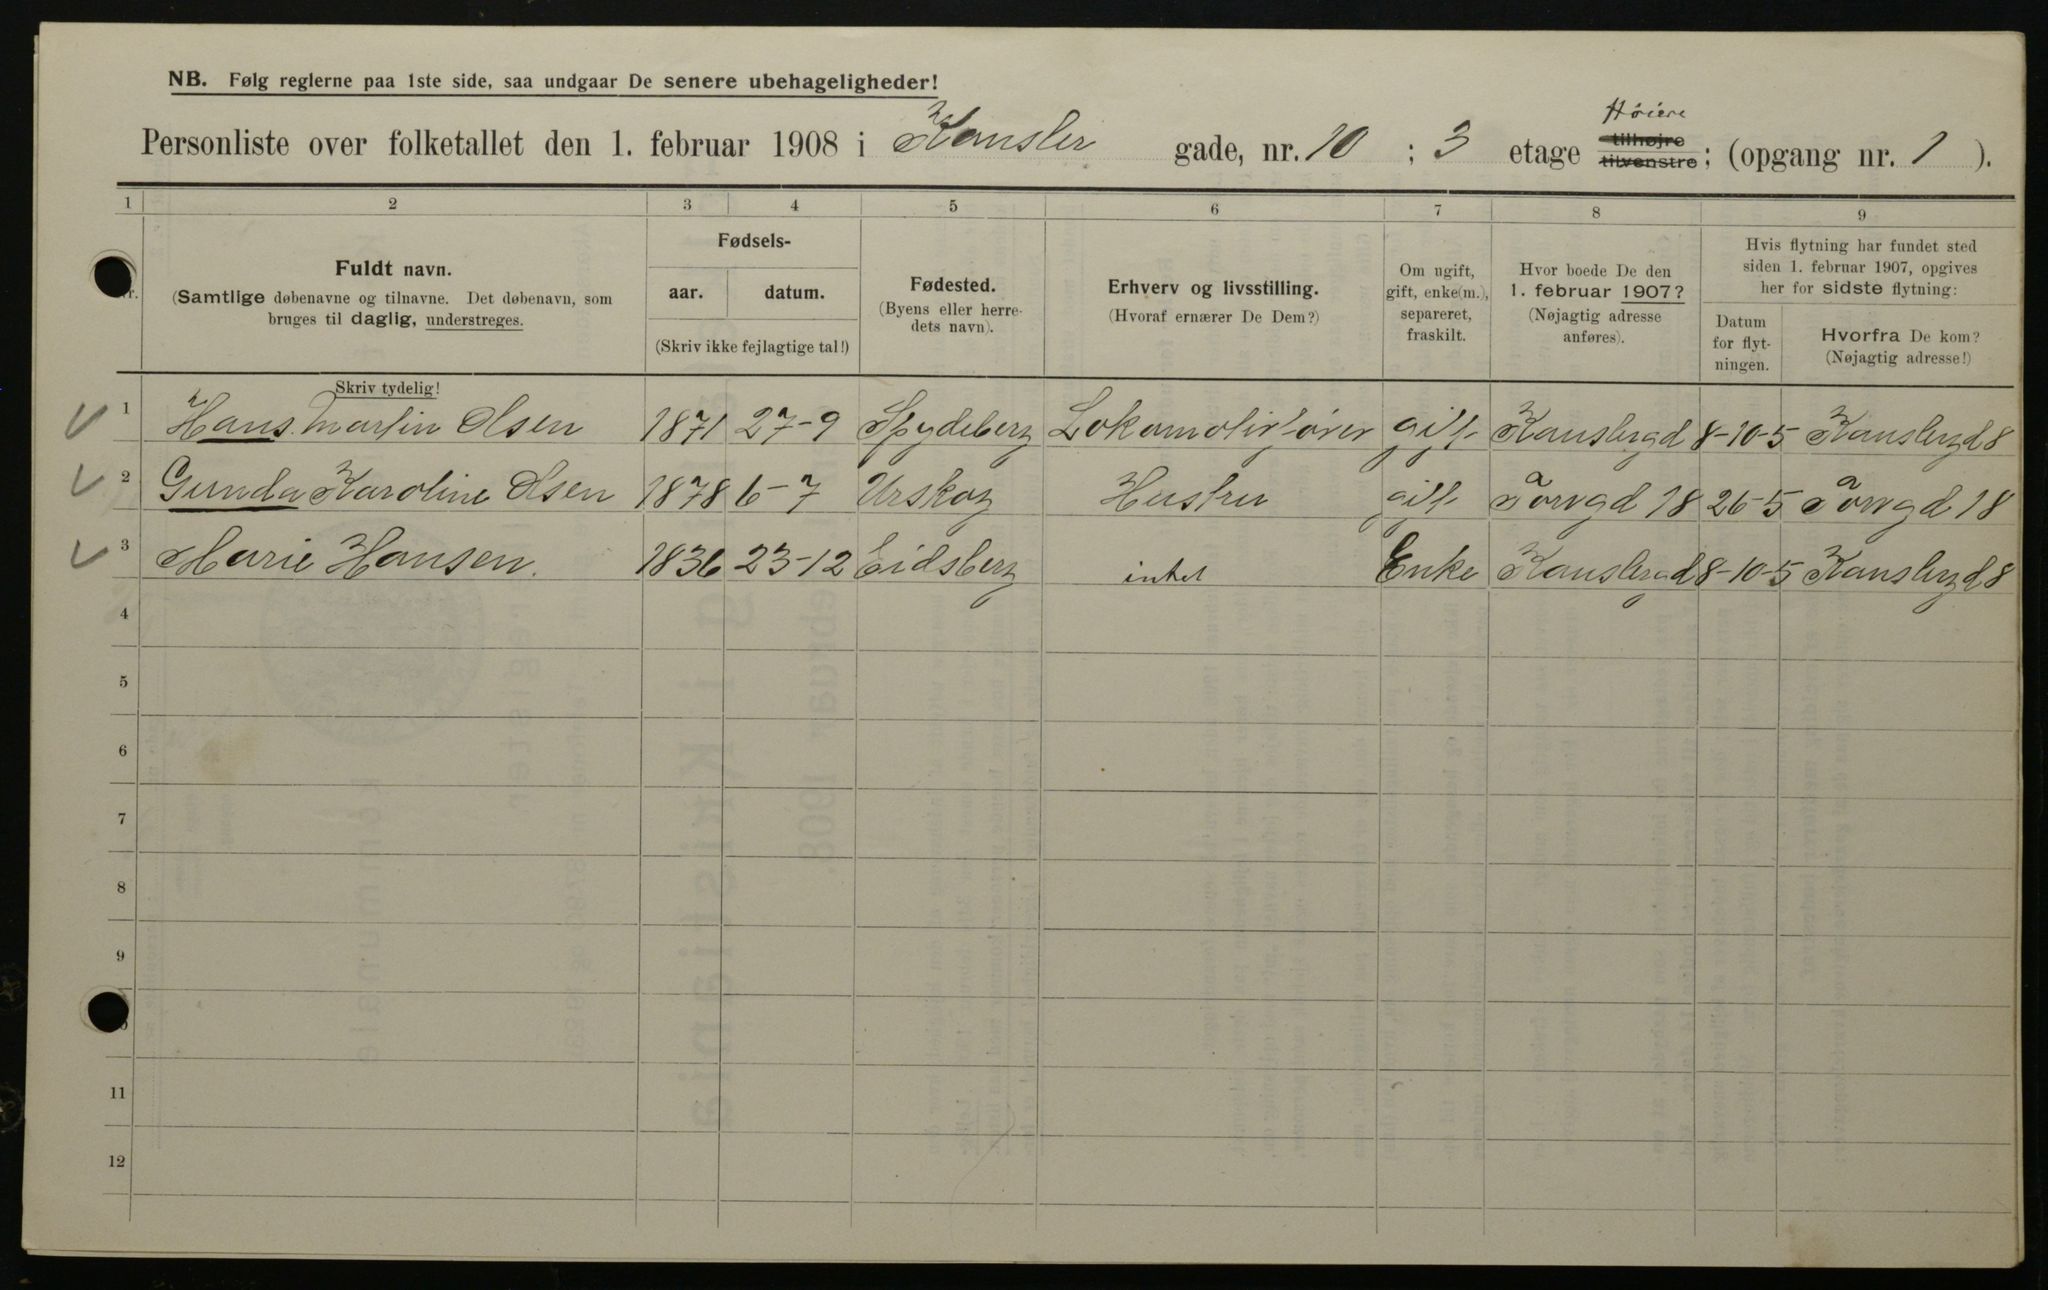 NB. Følg reglerne paa 1ste side, saa undgaar De senere ubehageligheder!
Høiere
Personliste over folketallet den 1. februar 1908 i Kansler gade, nr. 10 ; 3 etage tilhøjre tilvenstre ; (opgang nr. 1 ).
1 2 3 4 5 6 7 8 9
Nr.
Fuldt navn.
(Samtlige døbenavne og tilnavne. Det døbenavn, som
bruges til daglig, understreges.
Fødsels-
aar. datum.
(Skriv ikke fejlagtige tal!)
Fødested.
(Byens eller herre-
dets navn).
Erhverv og livsstilling.
(Hvoraf ernærer De Dem?)
Om ugift,
gift, enke(m.),
separeret,
fraskilt.
Hvor boede De den
1. februar 1907?
(Nøjagtig adresse
anføres).
Hvis flytning har fundet sted
siden 1. februar 1907, opgives
her for sidste flytning:
Datum
for flyt-
ningen.
Hvorfra De kom?
(Nøjagtig adresse!)
Skriv tydelig!
1 Hans Martin Olsen 1871 27-9 Spydeberg Lokomotivfører gift Kanslergd 8-10-5 Kanslergd 8
2 Gunda Karoline Olsen 1878 6-7 Urskog Hustru gift Torvgd 18 26-5 Torvgd 18
3 Marie Hansen. 1836 23-12 Eidsberg intet Enke Kanslergd 8-10-5 Kanslergd 8
4
5
6
7
8
9
11
12